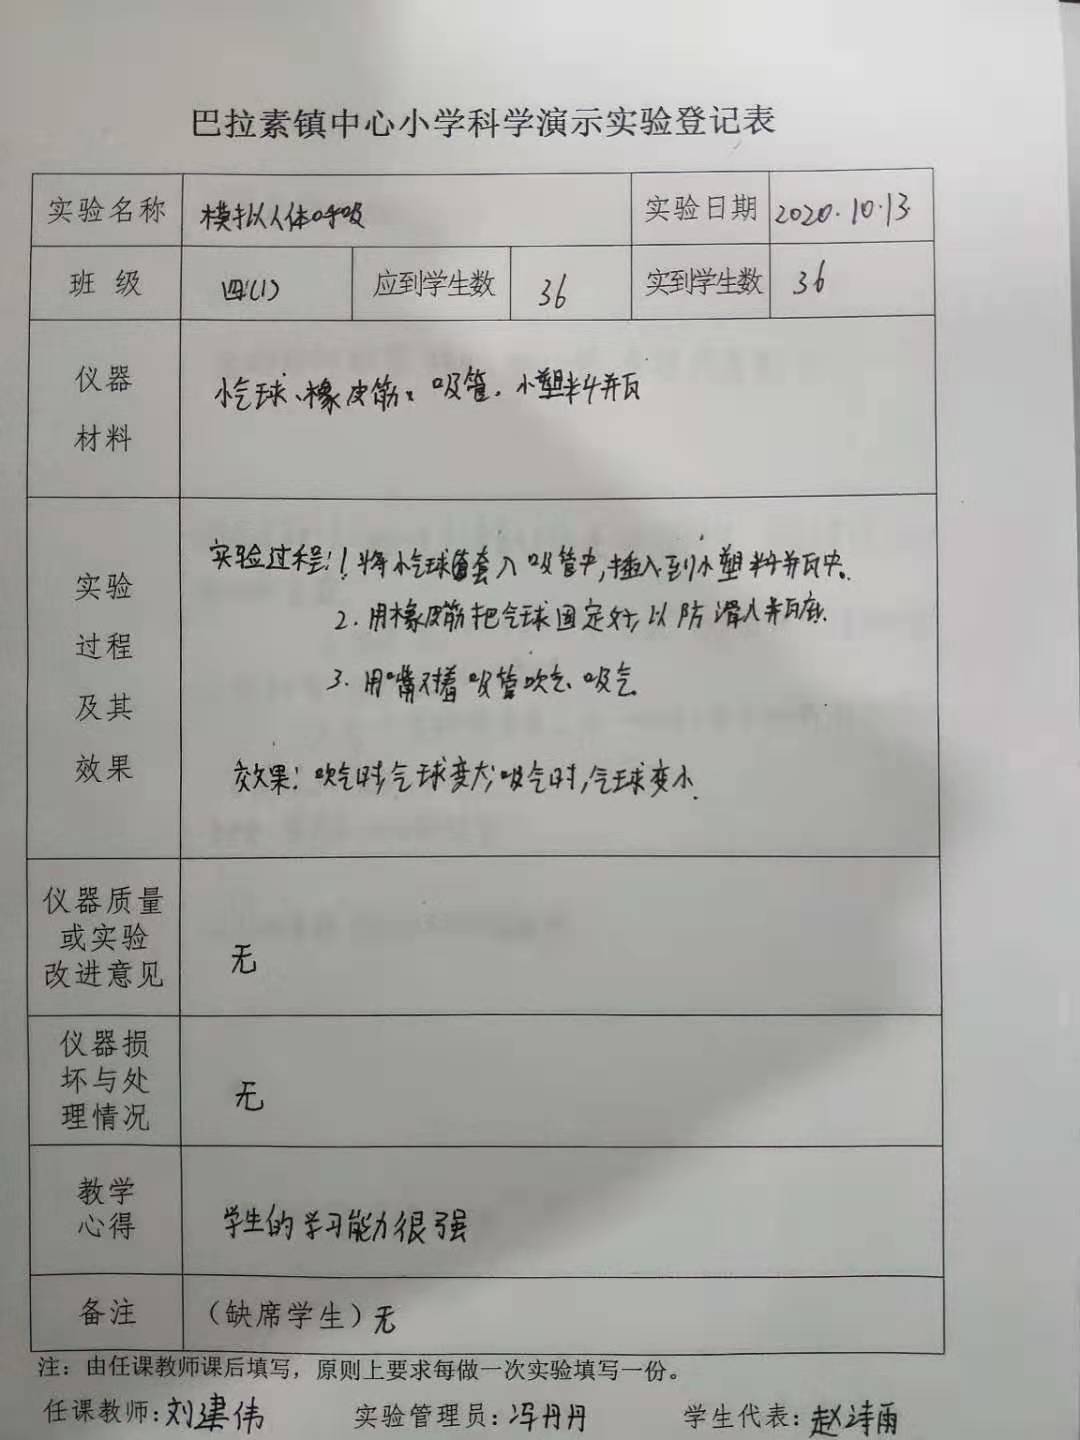 巴拉素镇中心小学科学演示实验登记表
实验名称 模拟人体呼吸 实验日期 2020.10.13
班 级 四(1) 应到学生数 36 实到学生数 36
仪器
材料
小气球、橡皮筋、吸管、小塑料瓶
实验
过程
及其
效果
实验过程:1.将小气球套入吸管中,插入到小塑料瓶中.
2.用橡皮筋把气球固定好,以防滑入瓶底.
3.用嘴对着吸管吹气、吸气
效果:吹气时,气球变大;吸气时,气球变小.
仪器质量
或实验
改进意见
无
仪器损
坏与处
理情况
无
教学
心得
学生的学习能力很强
备注 (缺席学生)无
注：由任课教师课后填写，原则上要求每做一次实验填写一份。
任课教师:刘建伟 实验管理员:冯丹丹 学生代表:赵诗雨